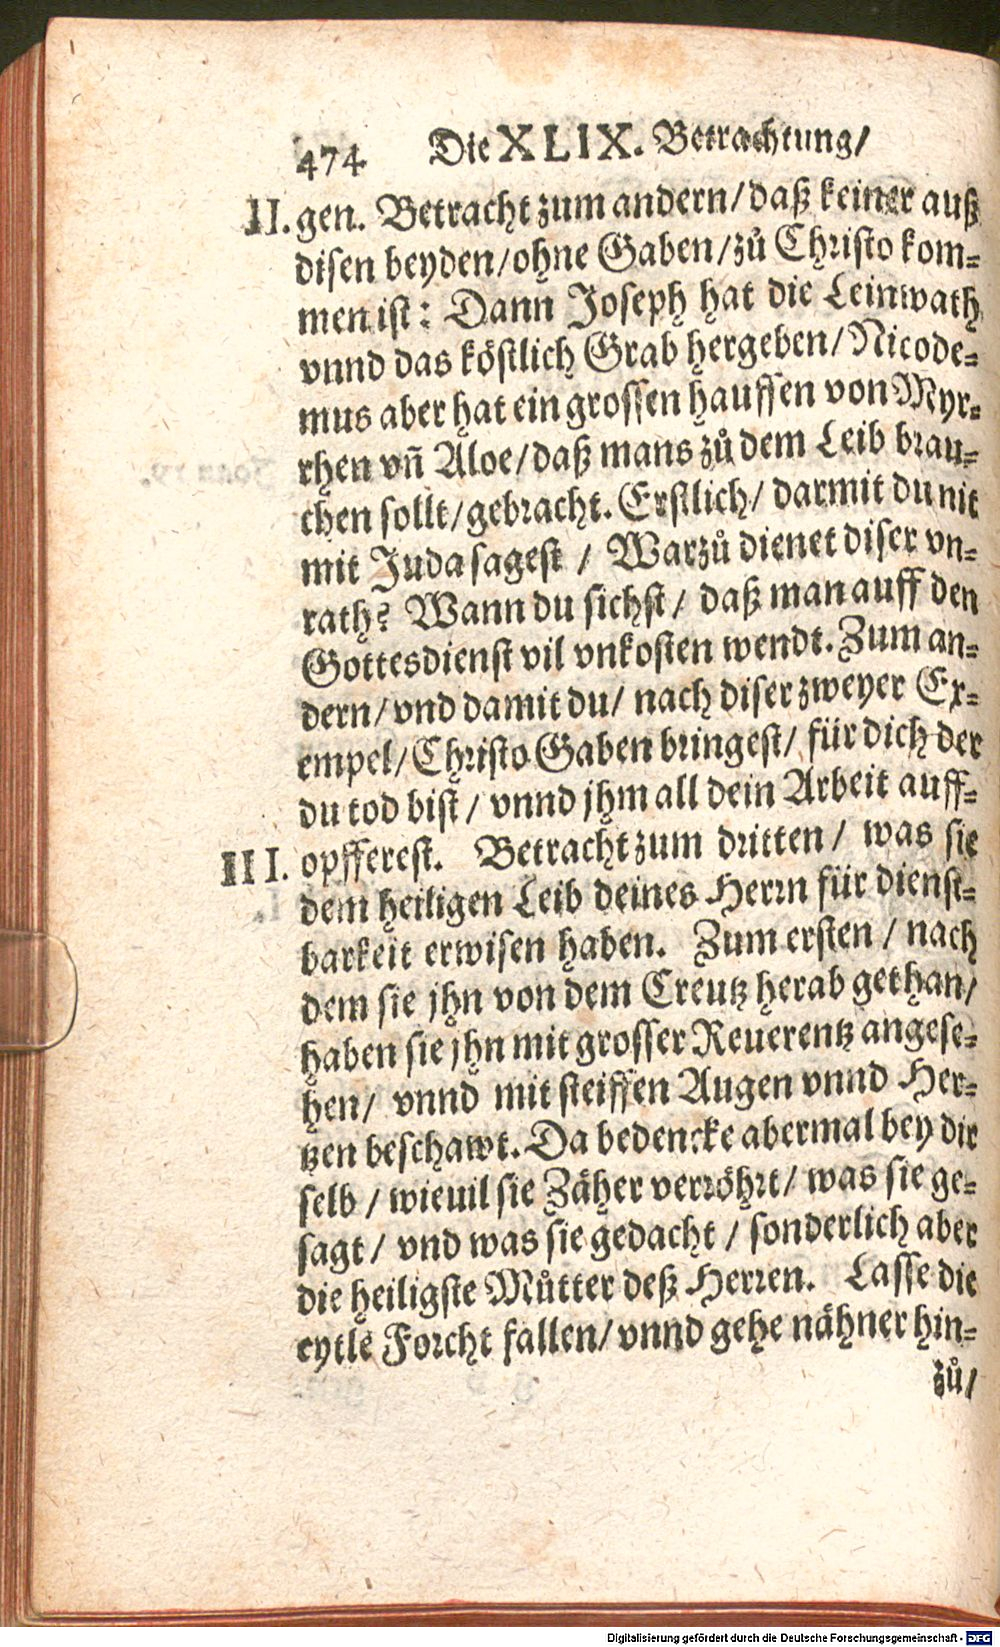 474 Die XLIX. Betrachtung/
II. gen. Betracht zum andern/ daß keiner auß
disen beyden/ ohne Gaben/ zů Christo kom-
men ist: Dann Joseph hat die Leinwath
vnnd das köstlich Grab hergeben/ Nicode-
mus aber hat ein grossen hauffen von Myr-
rhen vñ Aloe/ daß mans zů dem Leib brau-
chen sollt/ gebracht. Erstlich/ darmit du nit
mit Juda sagest / Warzů dienet diser vn-
rath? Wann du sichst/ daß man auff den
Gottesdienst vil vnkosten wendt. Zum an-
dern/ vnd damit du/ nach diser zweyer Ex-
empel/ Christo Gaben bringest/ für dich der
du tod bist/ vnnd jhm all dein Arbeit auff-
III. opfferest. Betracht zum dritten/ was sie
dem heiligen Leib deines Herrn für dienst-
barkeit erwisen haben. Zum ersten/ nach
dem sie jhn von dem Creutz herab gethan/
haben sie jhn mit grosser Reuerentz angese-
hen/ vnnd mit steiffen Augen vnnd Her-
tzen beschawt. Da bedencke abermal bey dir
selb / wieuil sie Zäher verröhrt/ was sie ge-
sagt/ vnd was sie gedacht / sonderlich aber
die heiligste Můtter deß Herren. Lasse die
eytle Forcht fallen/ vnnd gehe nähner hin-
zů/
Digitalisierung gefördert durch die Deutsche Forschungsgemeinschaft - DFG